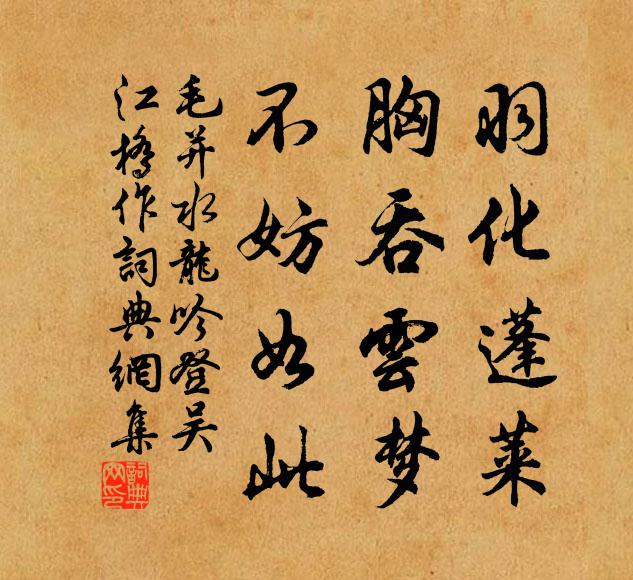 羽化蓬莱
胸吞雲梦
不妨如此
毛并水龍吟登吴
江橋作詞典網集
詞典
网印